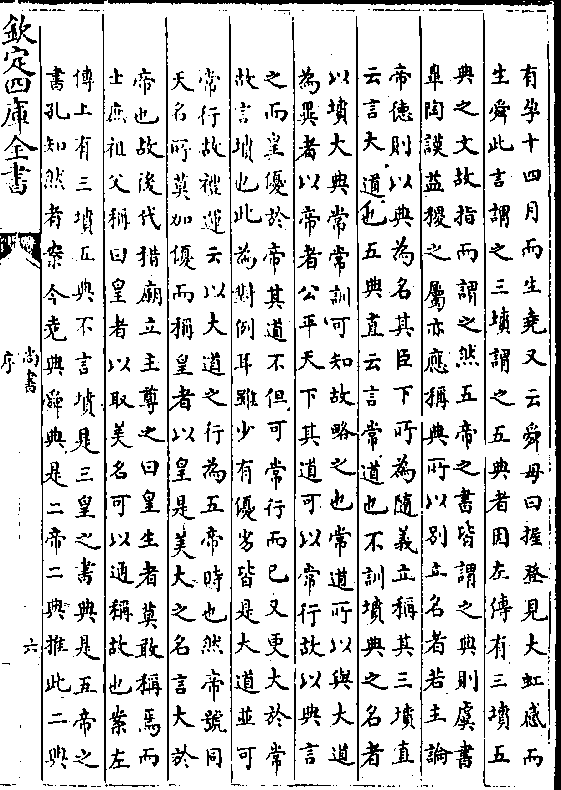 有孕十四月而生堯又云舜母曰握登見大虹感而
生舜此言謂之三墳謂之五典者因左傳有三墳五
典之文故指而謂之然五帝之書皆謂之典則虞書
臯陶謨益稷之屬亦應稱典所以別立名者若主論
帝德則以典為名其臣下所為隨義立稱其三墳直
云言大道也五典直云言常道也不訓墳典之名者
以墳大典常常訓可知故略之也常道所以與大道
為異者以帝者公平天下其道可以常行故以典言
之而皇優於帝其道不但可常行而已又更大於常
故言墳也此為對例耳雖少有優劣皆是大道並可
常行故禮運云以大道之行為五帝時也然帝號同
天名所莫加優而稱皇者以皇是美大之名言大於
帝也故後代措廟立主尊之曰皇生者莫敢稱焉而
士庶祖父稱曰皇者以取美名可以通稱故也案左
傳上有三墳五典不言墳是三皇之書典是五帝之
書孔知然者案今堯典舜典是二帝二典推此二典
欽定四庫全書
尚書
序
六